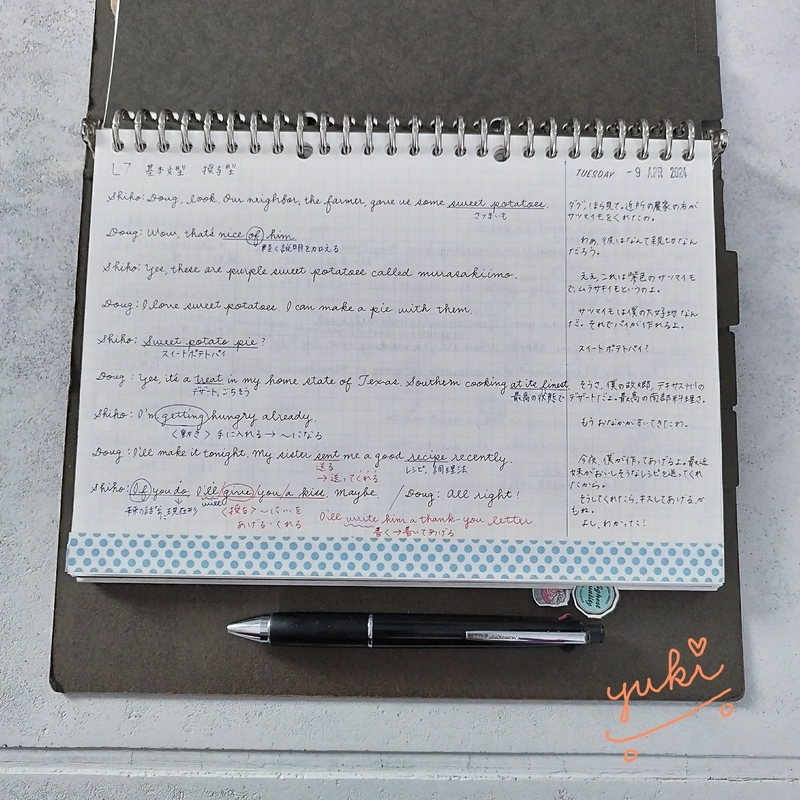 L7 基本文型 授与型
TUESDAY -9 APR 2024
Shiho: Doug, look. Our neighbor, the farmer, gave us some sweet potatoes.
さつまいも
ダグ、ほら見て。近所の農家の方が
サツマイモをくれたの。
Doug: Wow, that's nice of him.
軽く説明を加える
わぁ、彼はなんて親切なん
だろう。
Shiho: Yes, these are purple sweet potatoes called murasakiimo.
ええ、これは紫色のサツマイモ
で、ムラサキイモというのよ。
Doug: I love sweet potatoes. I can make a pie with them.
サツマイモは僕の大好物なん
だ。それでパイが作れるよ。
Shiho: Sweet potato pie?
スイートポテトパイ
スイートポテトパイ?
Doug: Yes, it's a treat in my home state of Texas. Southern cooking at its finest.
デザート、ごちそう
最高の状態で
そうさ、僕の故郷、テキサス州の
デザートだよ。最高の南部料理さ。
Shiho: I'm getting hungry already.
〈動き〉手に入れる→〜になる
もうおなかがすいてきたわ。
Doug: I'll make it tonight. My sister sent me a good recipe recently.
送る
→送ってくれる
レシピ、調理法
今夜、僕が作ってあげるよ。最近
妹がおいしそうなレシピを送ってくれ
たから。
Shiho: If you do, I'll give you a kiss. Maybe. / Doug: All right!
現在形
〈授与〉〜に〜を
あげる・くれる
そうしてくれたら、キスしてあげるか
もね。
よし、わかった!
I'll write him a thank-you letter.
書く→書いてあげる
Highest
Quality
yuki